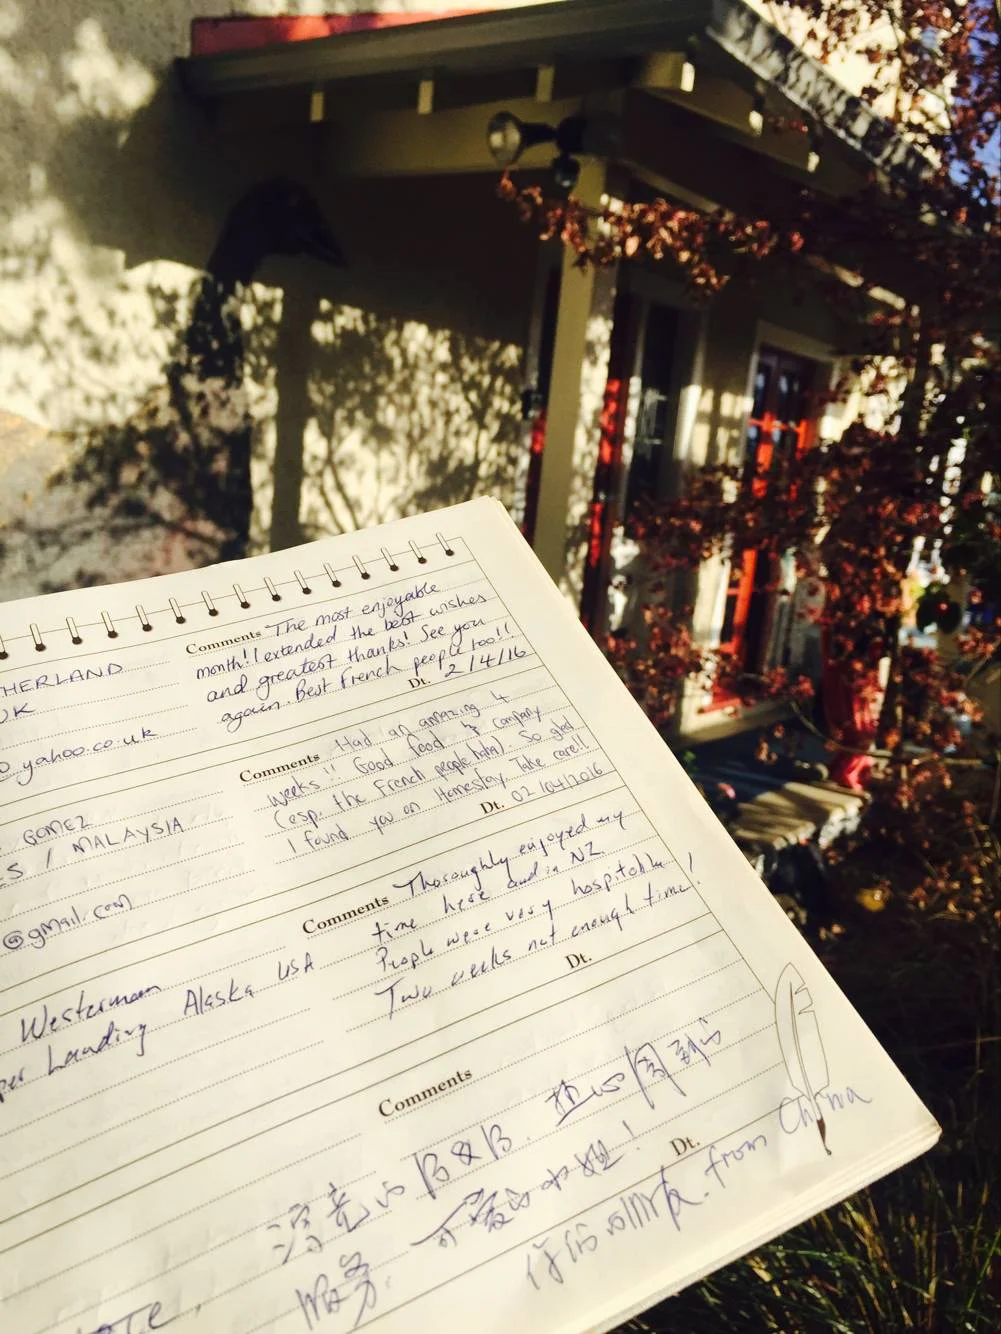 HERLAND
UK
@yahoo.co.uk
Comments The most enjoyable
month! I extended the best wishes
and greatest thanks! See you
again. Best French people too!!
Dt. 2/4/16
GOMEZ
ES / MALAYSIA
@gmail.com
Comments Had an amazing 4
weeks!! Good food & company
(esp. the French people haha). So glad
I found you on Homestay. Take care!!
Dt. 02/04/2016
Westermann
per Landing Alaska USA
Comments Thoroughly enjoyed my
time here and in NZ
People were very hospitable
Two weeks not enough time!
Dt.
Comments
漂亮的B&B. 热心周到的
服务. 可爱的小妞!
Dt.
from China